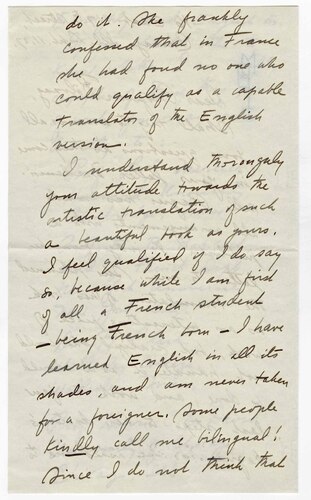 do it. She frankly
confessed that in France
she had fond no one who
could qualify as a capable
translator of the English
version.
I understand thoroughly
your attitude towards the
artistic translation of such
a beautiful book as yours.
I feel qualified if I do say
so, because while I am first
of all a French student
– being French born – I have
learned English in all its
shades, and am never taken
for a foreigner. Some people
kindly call me bilingual!
Since I do not think that